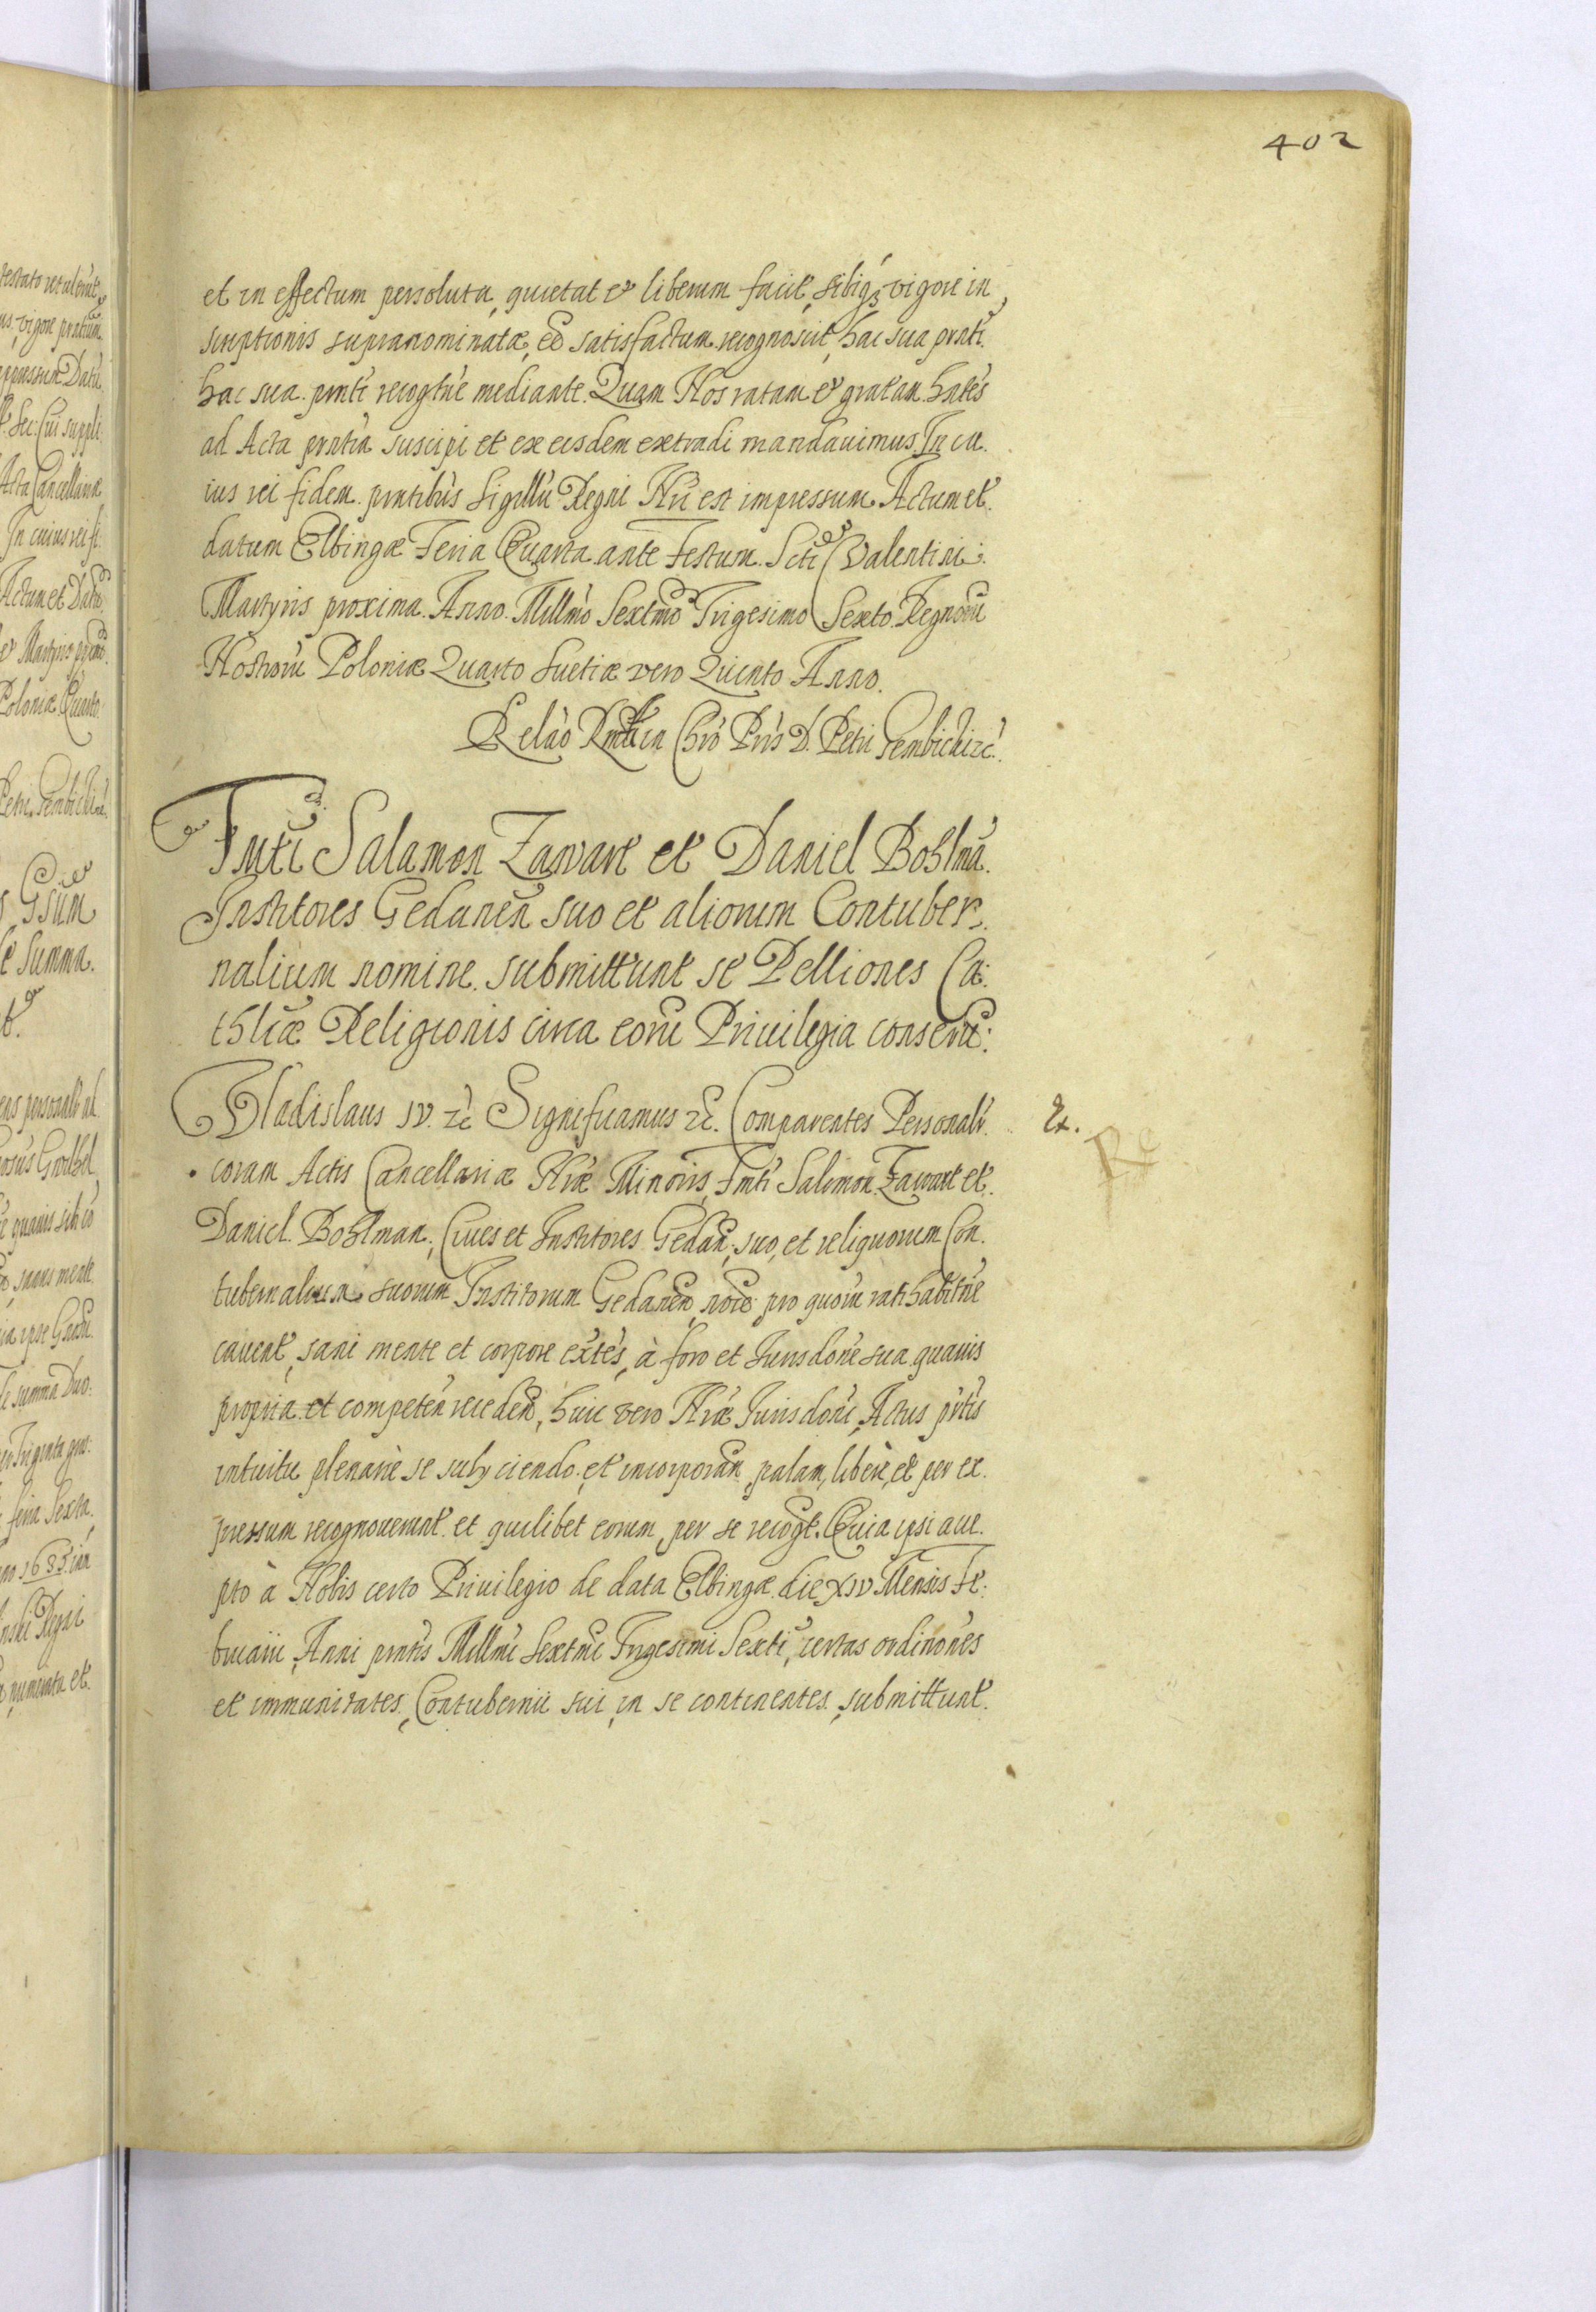 402
et in effectum persoluta, quietat et liberum facit, sibiq3 vigore in
scriptionis supranominatæ, eē satisfactum recognoscit, hac sua pnti
hac sua pnti recogtne mediante. Quam Nos ratam et gratam hntes
ad Acta pntia suscipi et ex eisdem extradi mandauimus. In cu
ius rei fidem pntibus Sigillū Regni Nrī est impressum. Actum et
datum Elbingæ Feria Quarta ante Festum Scti Valentini
Martyris proxima. Anno Millmo Sextmo Trigesimo Sexto. Regnorū
Nostrorū Poloniæ Quarto Suetiæ vero Quinto Anno.
Relāo Rndi in Chro Pris D. Petri Gembicki &c.
Fmti Salamon Zawart et Daniel Bohlmā.
Institores Gedaneñ suo et aliorum Contuber
nalium nomine submittunt se Pelliones Ca:
thlicæ Religionis circa eorū Priuilegia conseruē:
Vladislaus IV. &c Significamus &c. Comparentes Personalr
Ex.
Rc
coram Actis Cancellariæ Nræ Minoris, Fmti Salomon Zawart et
Daniel Bohlman, Ciues et Institores Gedan: suo, et reliquorum Con
tubernalium suorum Institorum Gedaneñ noīe pro quorū ratihabitne
cauent, sani mente et corpore extes, à foro et Jurisdone sua quauis
propria et competeñ recedeñ, huic vero Nræ Jurisdoni, Actus prtis
intuitu plenariè se subijciendo et incorporañ palam, liberè, et per ex
pressum recognouerunt et quilibet eorum per se recogt. Quia ipsi acce
pto à Nobis certo Priuilegio de data Elbingæ die XIV Mensis Fe
bruarii, Anni pntis Millmi Sextmi Trigesimi Sexti, certas ordinones
et immunitates, Contubernii sui, in se continentes, submittunt